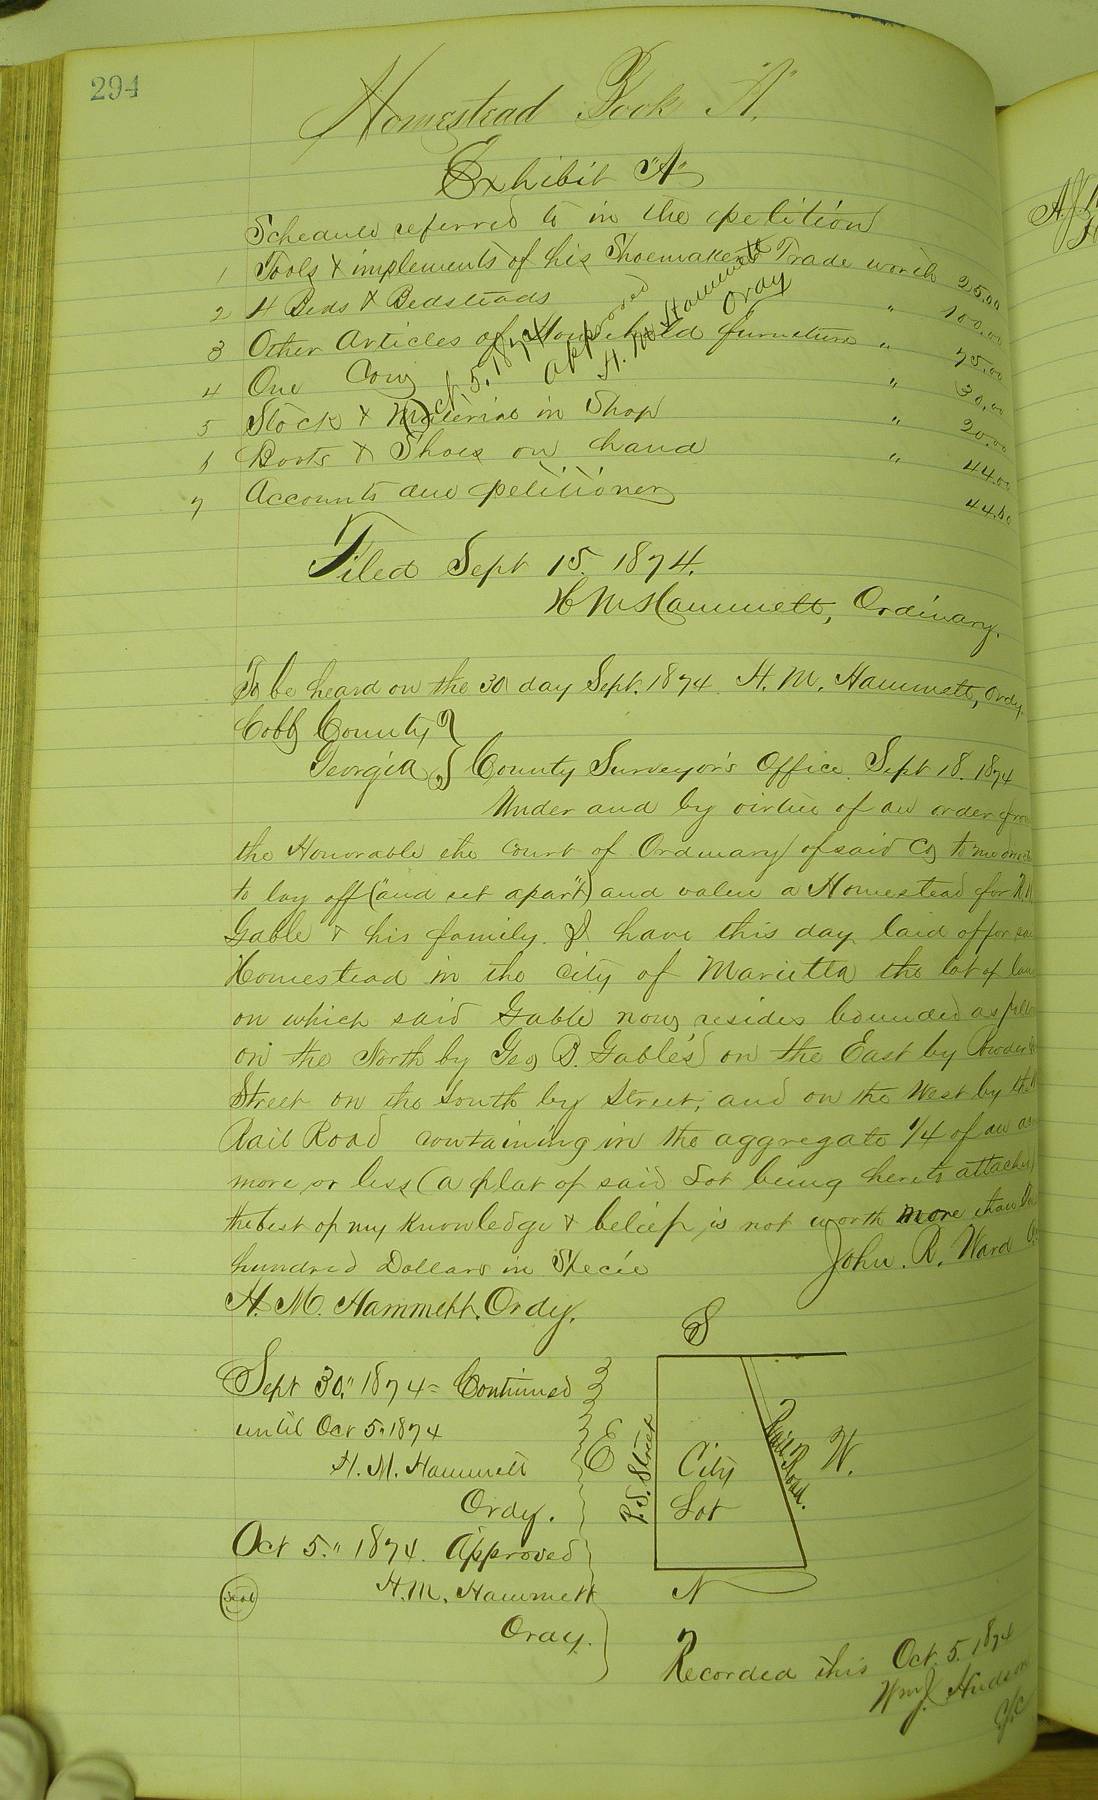 294
Homestead Book "A".
Exhibit "A"
Schedule referred to in the petition
1 Tools & implements of his Shoemakers Trade worth 25.00
2 4 Beds & Bedsteads " 100.00
3 Other Articles of Household furniture " 75.00
4 One Cow " 30.00
5 Stock & Material in Shop " 20.00
6 Boots & Shoes on hand " 44.00
7 Accounts due petitioner 44.00
Oct 5. 1874
Approved
H. M. Hammett
Ordy
Filed Sept 15. 1874.
H M Hammett, Ordinary.
To be heard on the 30 day Sept. 1874. H. M. Hammett, Ordy.
Cobb County
Georgia } County Surveyor's Office. Sept 18. 1874
Under and by virtue of an order from
the Honorable the Court of Ordinary of said Co to me
to lay off ("and set apart") and value a Homestead for
Gable & his family. I have this day laid off for
Homestead in the City of Marietta the lot of
on which said Gable now resides bounded as
on the North by Geo D. Gable's on the East by Powder
Street on the South by Street, and on the West by the
Rail Road containing in the aggregate 1/4 of an
more or less (a plat of said Lot being hereto attached)
the best of my Knowledge & belief is not worth more than
hundred Dollars in Specie John. R. Ward
H. M. Hammett. Ordy.
Sept 30," 1874 = Continued
until Oct 5. 1874
H. M. Hammett
Ordy.
Oct 5." 1874. Approved
Seal H. M. Hammett
Orday.
S
E
P. S. Street
City
Lot
Rail Road.
W.
N
Recorded this Oct. 5. 1874
Wm J. Hudson